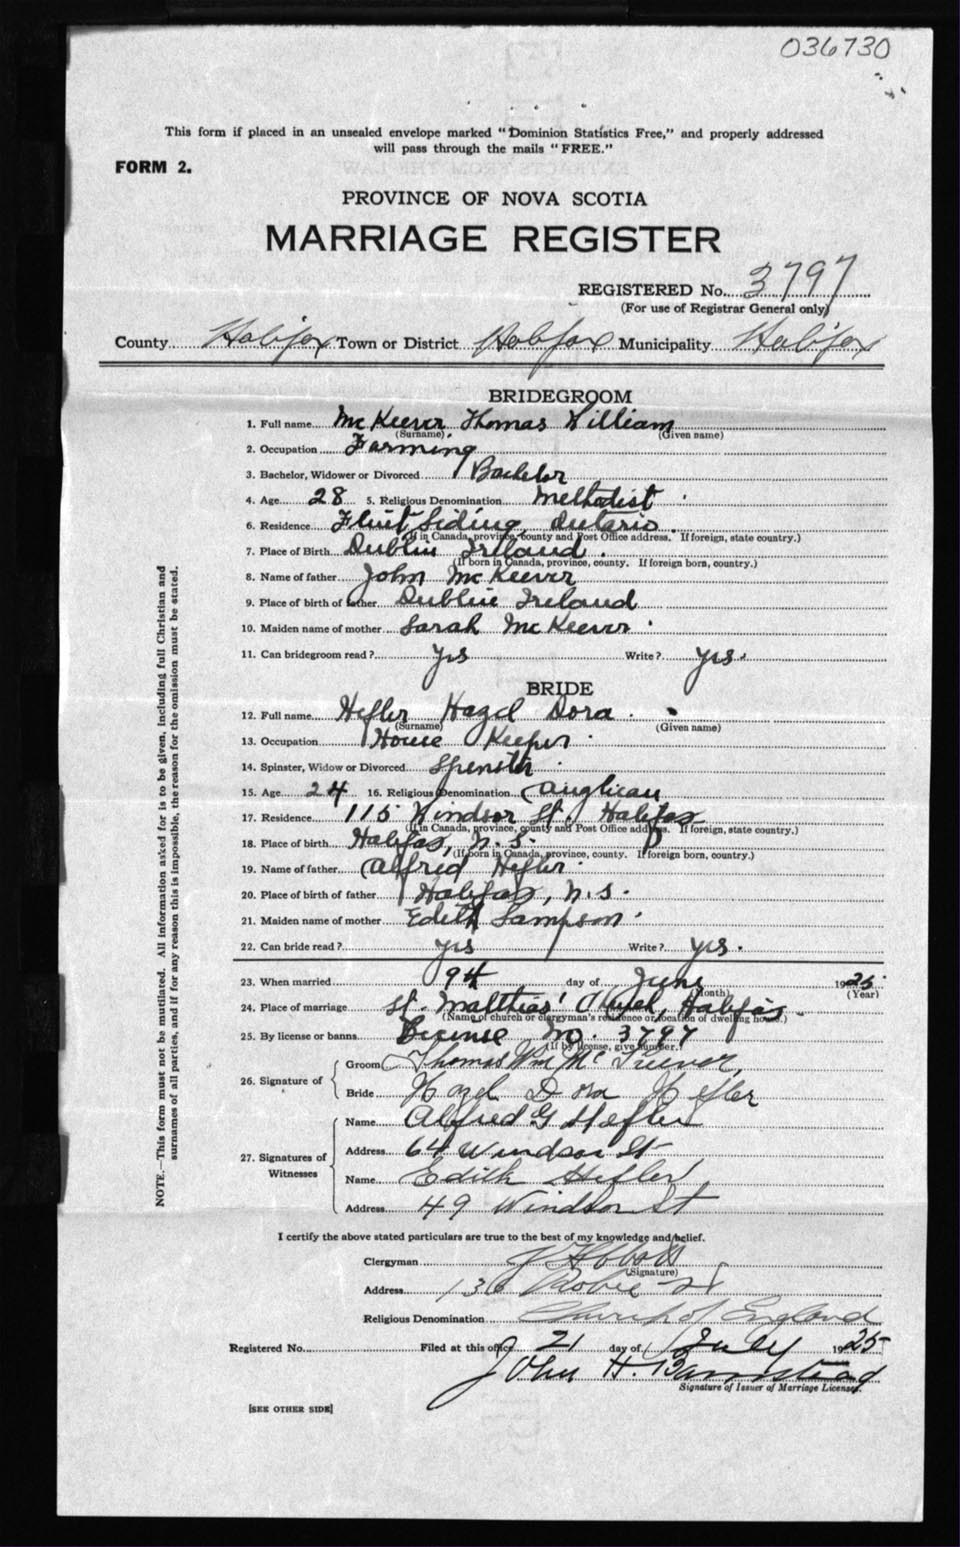 036730
This form if placed in an unsealed envelope marked "Dominion Statistics Free," and properly addressed
will pass through the mails "FREE."
FORM 2.
PROVINCE OF NOVA SCOTIA
MARRIAGE REGISTER
REGISTERED No. 3797
(For use of Registrar General only)
County Halifax Town or District Halifax Municipality Halifax
BRIDEGROOM
1. Full name McKeever Thomas William
(Surname) (Given name)
2. Occupation Farming
3. Bachelor, Widower or Divorced Bachelor
4. Age 28 5. Religious Denomination Methodist
6. Residence Flint Siding, Ontario
(If in Canada, province, county and Post Office address. If foreign, state country.)
7. Place of Birth Dublin Ireland.
(If born in Canada, province, county. If foreign born, country.)
8. Name of father John McKeever
9. Place of birth of father Dublin Ireland
10. Maiden name of mother Sarah McKeever
11. Can bridegroom read? yes Write? yes.
BRIDE
12. Full name Hefler Hazel Dora.
(Surname) (Given name)
13. Occupation House Keeper
14. Spinster, Widow or Divorced Spinster
15. Age 24 16. Religious Denomination Anglican
17. Residence 115 Windsor St. Halifax
(If in Canada, province, county and Post Office address. If foreign, state country.)
18. Place of birth Halifax, N.S.
(If born in Canada, province, county. If foreign born, country.)
19. Name of father Alfred Hefler
20. Place of birth of father Halifax, N.S.
21. Maiden name of mother Edith Sampson
22. Can bride read? yes Write? yes.
23. When married 9th day of June 1925
(Month) (Year)
24. Place of marriage St. Matthias' Church, Halifax.
(Name of church or clergyman's residence or location of dwelling house.)
25. By license or banns License No. 3797
(If by license, give number.)
26. Signature of Groom Thomas Wm Mc
Bride Hazel Dora Hefler
27. Signatures of Witnesses Name Alfred G Hefler
Address 64 Windsor St
Name Edith Hefler
Address 49 Windsor St
NOTE.—This form must not be mutilated. All information asked for is to be given, including full Christian and
surnames of all parties, and if for any reason this is impossible, the reason for the omission must be stated.
I certify the above stated particulars are true to the best of my knowledge and belief.
Clergyman
(Signature)
Address 136 Robie St
Religious Denomination Church of England
Registered No. Filed at this office 21 day of July 1925
John H. Barnstead
Signature of Issuer of Marriage Licenses.
[SEE OTHER SIDE]